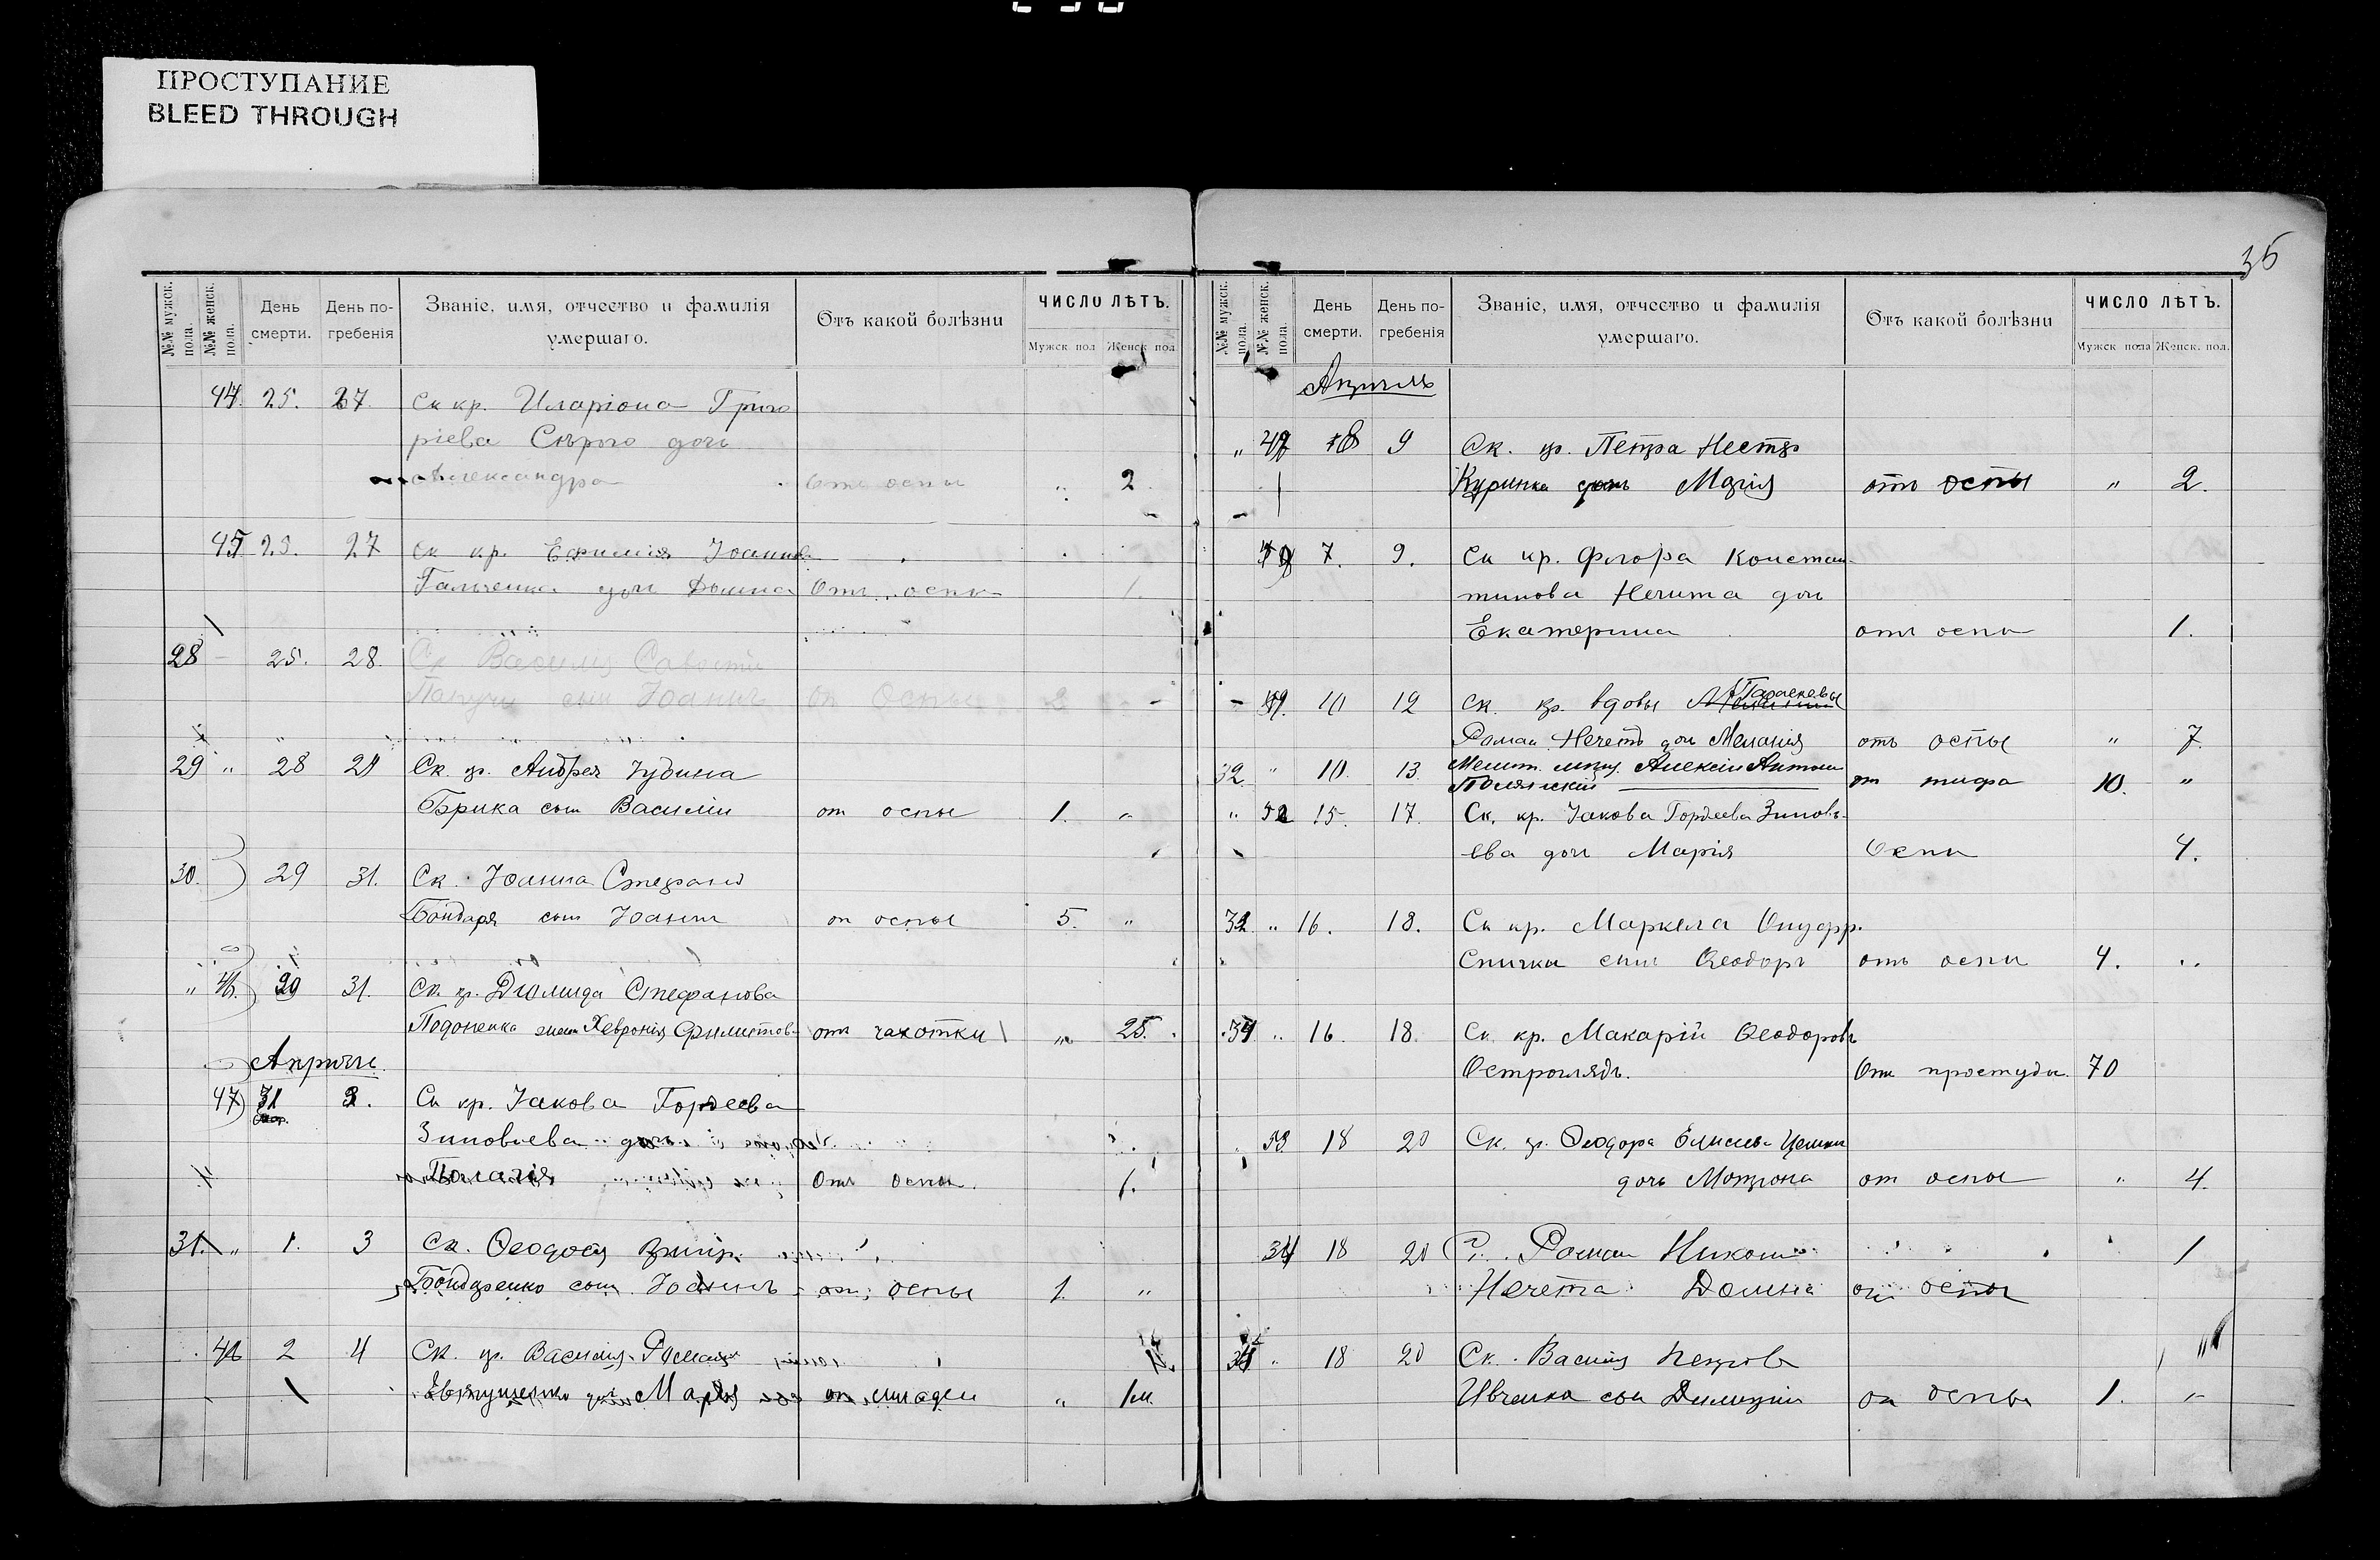 ПРОСТУПАНИЕ
BLEED THROUGH
36
№№ мужск. пола. №№ женск. пола. День смерти. День по-гребенія Званіе, имя, отчество и фамилія умершаго. Отъ какой болѣзни ЧИСЛО ЛѢТЪ. Мужск пол Женск пол
44. 25. 27. Ск кр. Иларіона Григо
ріева Сѣраго дочь
Александра Отъ оспы " 2
45 25. 27 Ск кр. Іоаннов
дочь Домна Отъ оспы 1.
28 - 25. 28. Ск Василія Савостія
сын Іоаннъ От Оспы 2 -
29 " 28 29 Ск. кр. Андрея
Брика сын Василій от оспы 1. "
30. 29 31. Ск. Іоанна Стефанов
Бондаря сын Іоанн от оспы 5. "
" 46. 29 31. Ск. кр. Діомида Стефанова
жена Хевронія Филистов от чахотки " 25.
Апрѣль.
47 31 2. Ск кр. Іакова Гордеева
Зиновьева дочь
Пелагія Отъ оспы. 1.
31. " 1. 3 Ск. Ѳеодосія
Бондаренко сын Іоаннъ от оспы 1. "
48 2 4 Ск. кр. Василія Роман
Евтушенко Марія от младен " 1м.
№№ мужск. пола. №№ женск. пола. День смерти. День по-гребенія Званіе, имя, отчество и фамилія умершаго. Отъ какой болѣзни ЧИСЛО ЛѢТЪ. Мужск пола Женск. пол.
Апрѣль
" 8 9 Ск. кр. Петра Нестер
Куринка дочь Марія отъ оспы " 2.
7. 9. Ск кр. Флора Констан-
тинова Нечита дочь
Екатерина отъ оспы 1.
- 10 12 Ск. кр. вдовы Параскевы
Роман. Нечета доч Меланія отъ оспы " 7.
32. " 10. 13. Алексій Антон
Полянскій от тифа 10. "
" 52 15. 17. Ск. кр. Іакова Гордеева Зиновь-
ева доч Марія Оспы 4.
" 16. 18. Ск кр. Маркела Онуфр.
Спичка сынъ Ѳеодоръ отъ оспы 4. "
" 16. 18. Ск кр. Макарій Ѳеодоровъ
Остроглядъ. Отъ простуды. 70
53 18 20 Ск. кр. Ѳеодора
дочь Мотрона от оспы " 4.
54 18 20 Роман Никол
Нечета Домна от оспы 1
" 18 20 Ск. Василія Петрова
Ивченка сын Димитрій от оспы 1. "